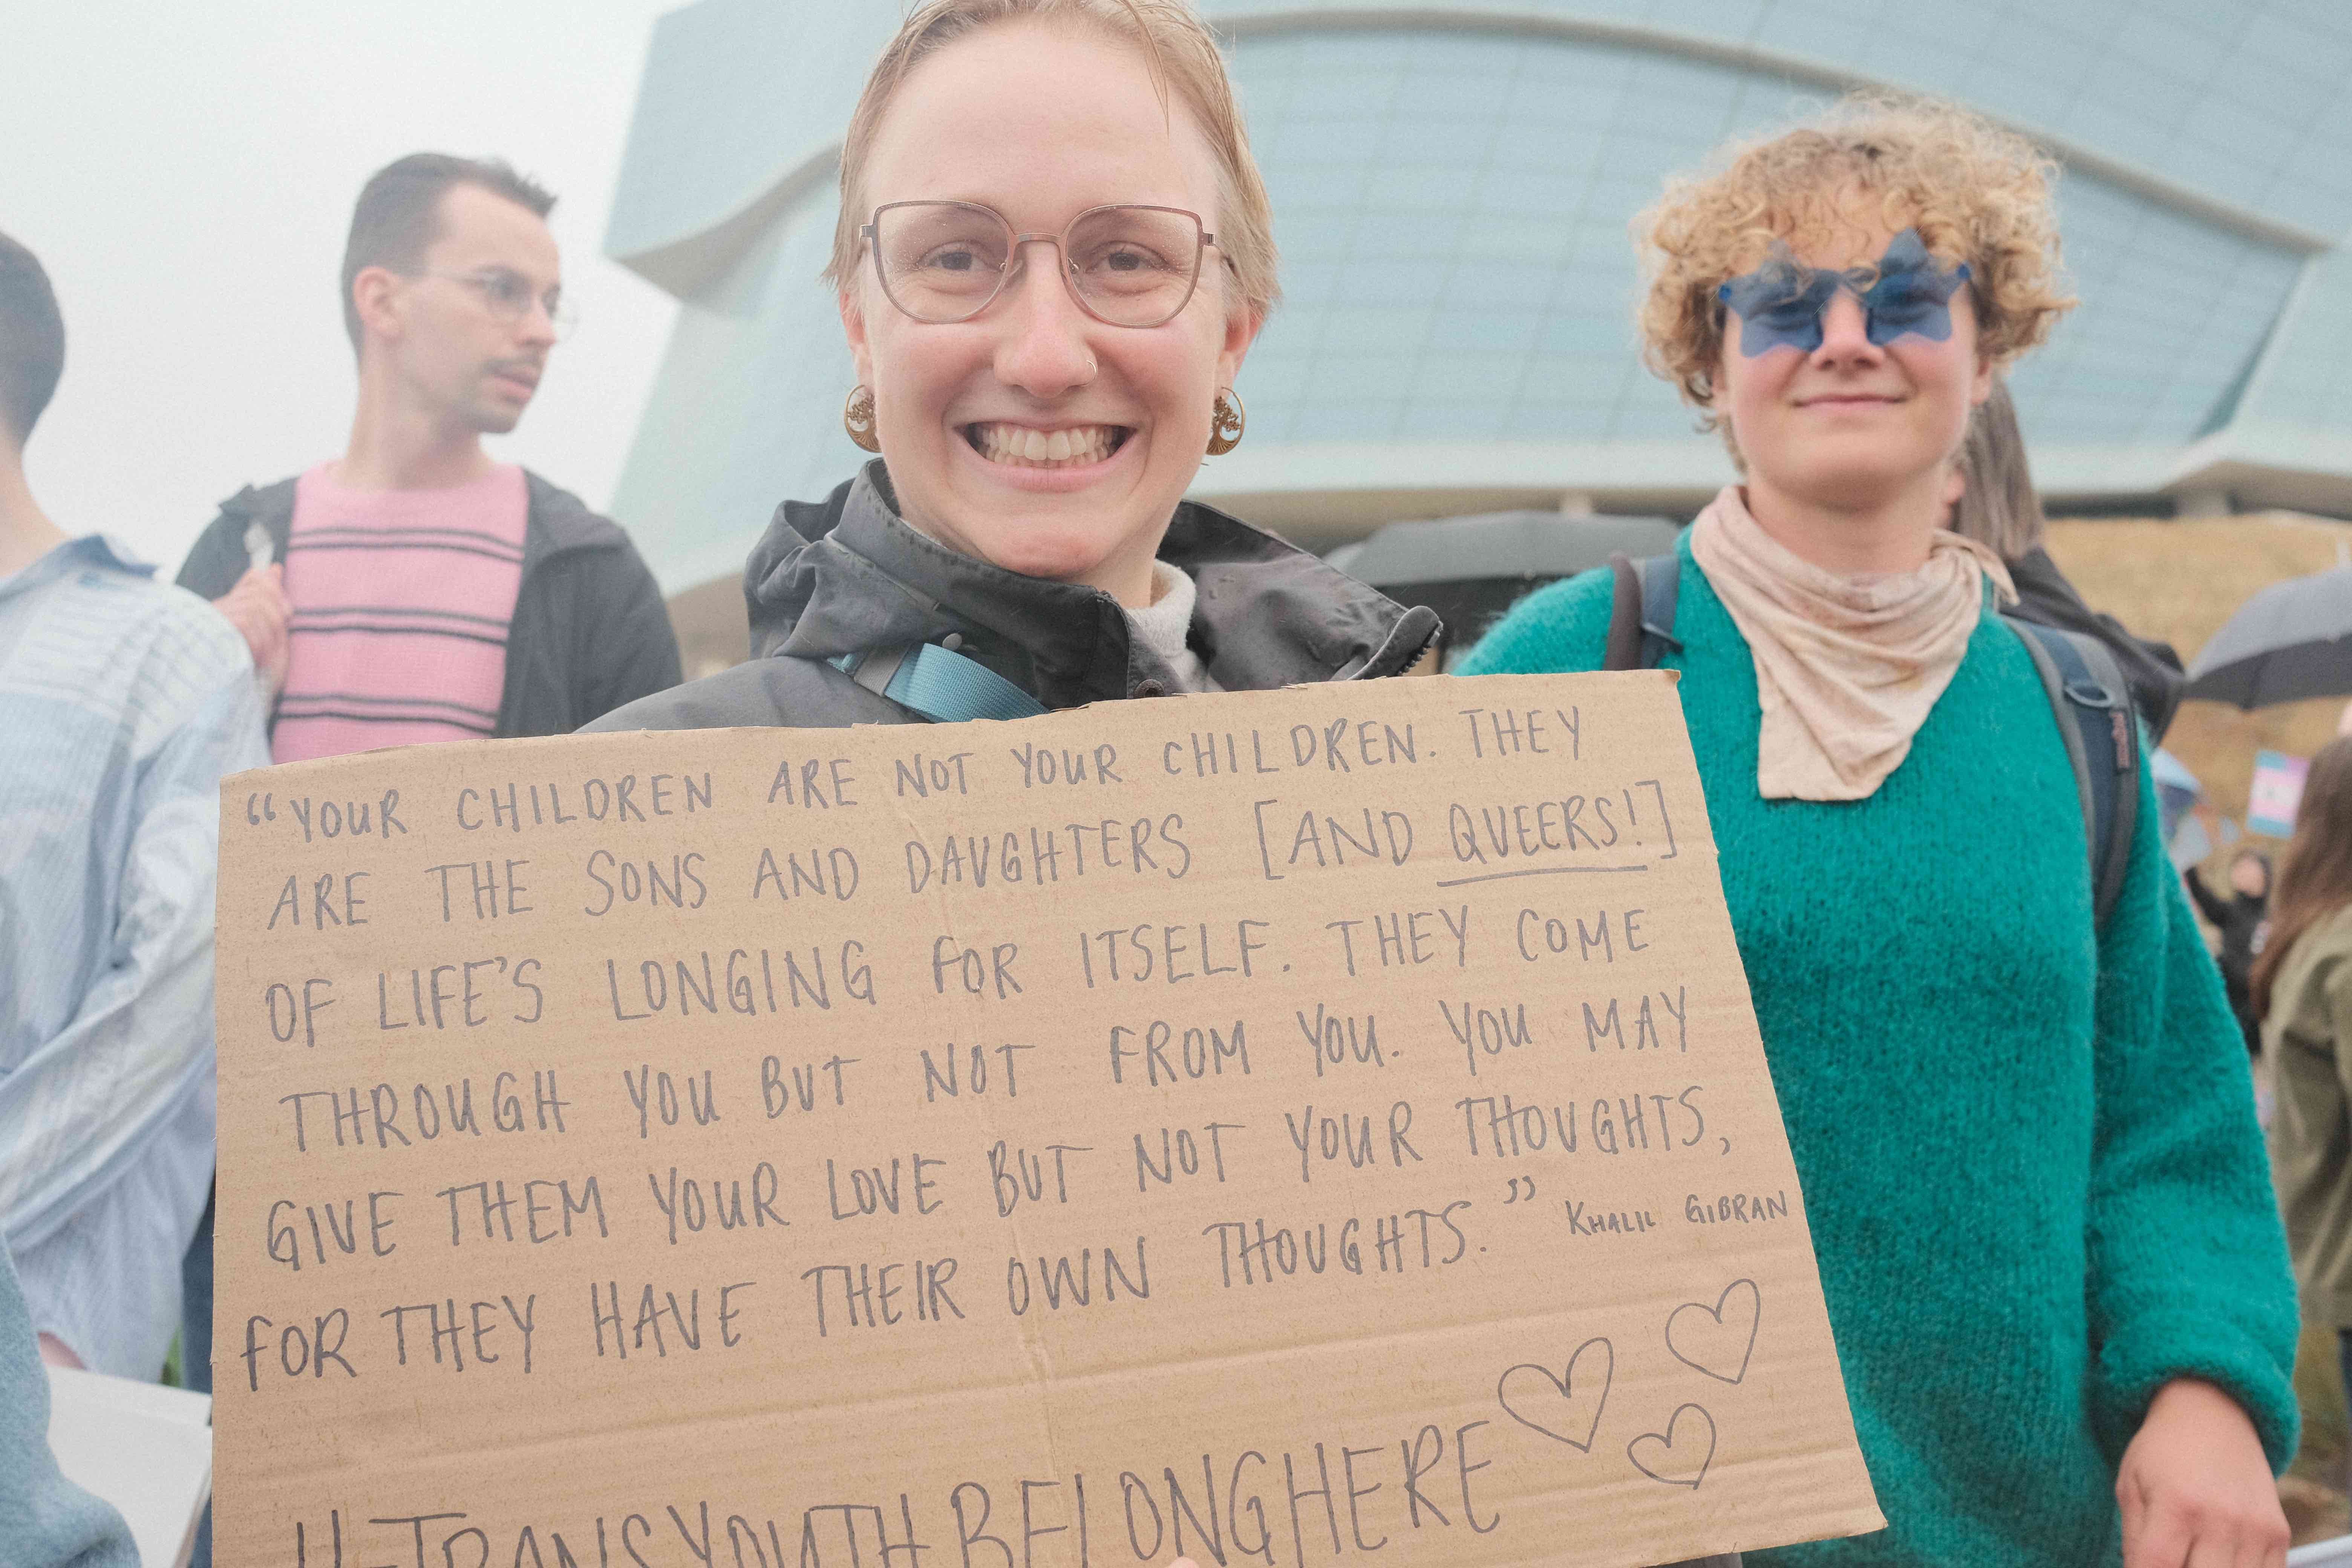 “YOUR CHILDREN ARE NOT YOUR CHILDREN. THEY
ARE THE SONS AND DAUGHTERS [AND QUEERS!]
OF LIFE'S LONGING FOR ITSELF. THEY COME
THROUGH YOU BUT NOT FROM YOU. YOU MAY
GIVE THEM YOUR LOVE BUT NOT YOUR THOUGHTS,
FOR THEY HAVE THEIR OWN THOUGHTS.” KHALIL GIBRAN
#TRANSYOUTHBELONGHERE